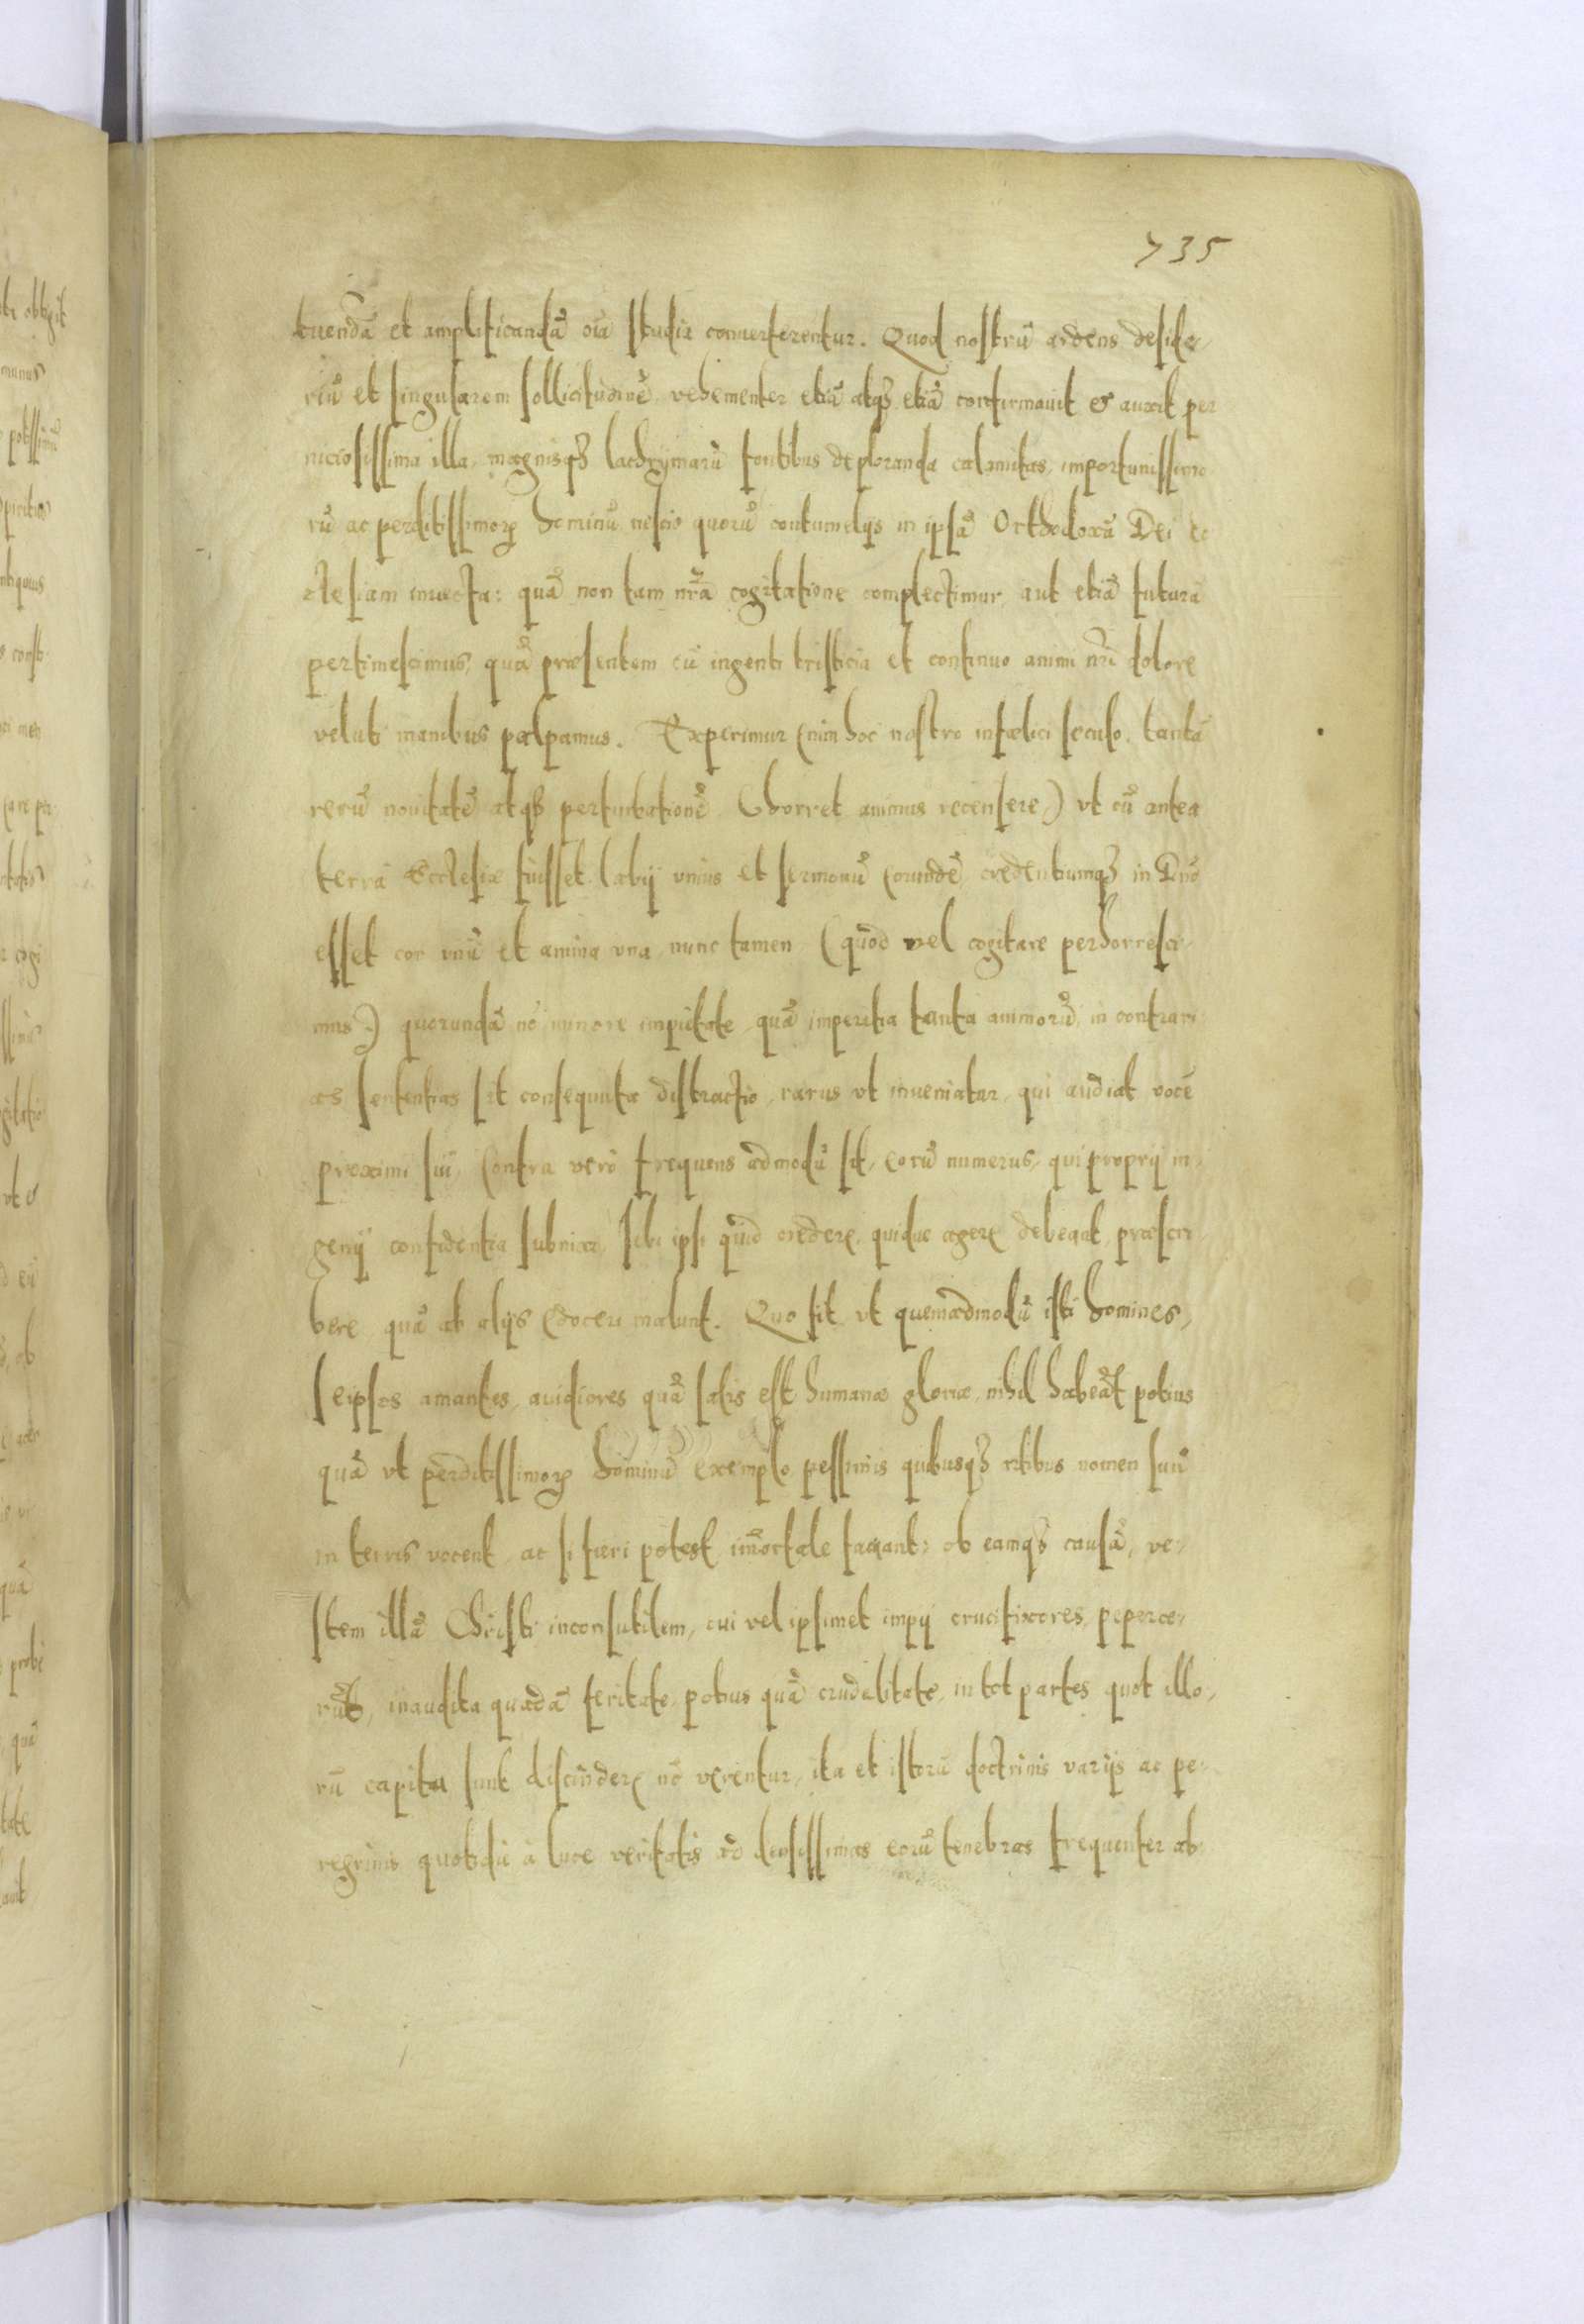 735
tuendā et amplificandā oīa studia conuerterentur. Quod nostrū ardens deside-
riū et singularem sollicitudinē, vehementer etiā atq3 etiā confirmauit & auxit per
niciosissima illa, magnisq3 lachrymarū fontibus deploranda calamitas, importunissimo
rū ac perditissimorꝝ hominū nescio quorū contumelijs in ipsā Orthodoxā Dei ec
clesiam inuecta: quā non tam nr̄a cogitatione complectimur, aut etiā futurā
pertimescimus, quā præsentem cū ingenti tristicia et continuo animi nr̄i dolore
veluti manibus palpamus. Experimur enim hoc nostro infælici seculo, tantā
rerū nouitatē atq3 perturbationē (horret animus recensere) vt cū antea
terra Ecclesiæ fuisset labij vnius et sermonū eorundē, credentiumq3 in Dn̄o
esset cor vnū et anima vna, nunc tamen (quod vel cogitare perhorresci-
mus) quorundā nō minore impietate, quā imperitia tanta animorū, in contrari
as sententias sit consequuta distractio, rarus vt inueniatur, qui audiat vocē
proximi sui, Contra verò frequens admodū sit, eorū numerus, qui proprij in-
genij confidentia subnixi, sibi ipsi quid credere, quidue agere debeant, præscri
bere, quā ab alijs edoceri malunt. Quo fit, vt quemadmodū isti homines,
seipsos amantes, auidiores quā satis est humanæ gloriæ, nihil habeāt potius
quā vt perditissimorꝝ hominū exemplo, pessimis quibusq3 artibus nomen suū
in terris vocent, ac si fieri potest, im̄ortale faciant: ob eamq3 causā, ve-
stem illā Christi inconsutilem, cui vel ipsimet impij crucifixores, peperce-
rūt, inaudita quadā feritate, potius quā crudelitate, in tot partes, quot illo-
rū capita sunt discindere nō verentur, ita et istorū doctrinis varijs ac pe-
regrinis quotidie à luce veritatis ad densissimas eorū tenebras frequenter ab